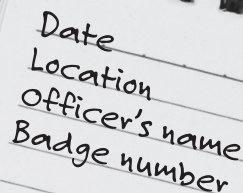 Date
Location
Officer's name
Badge number